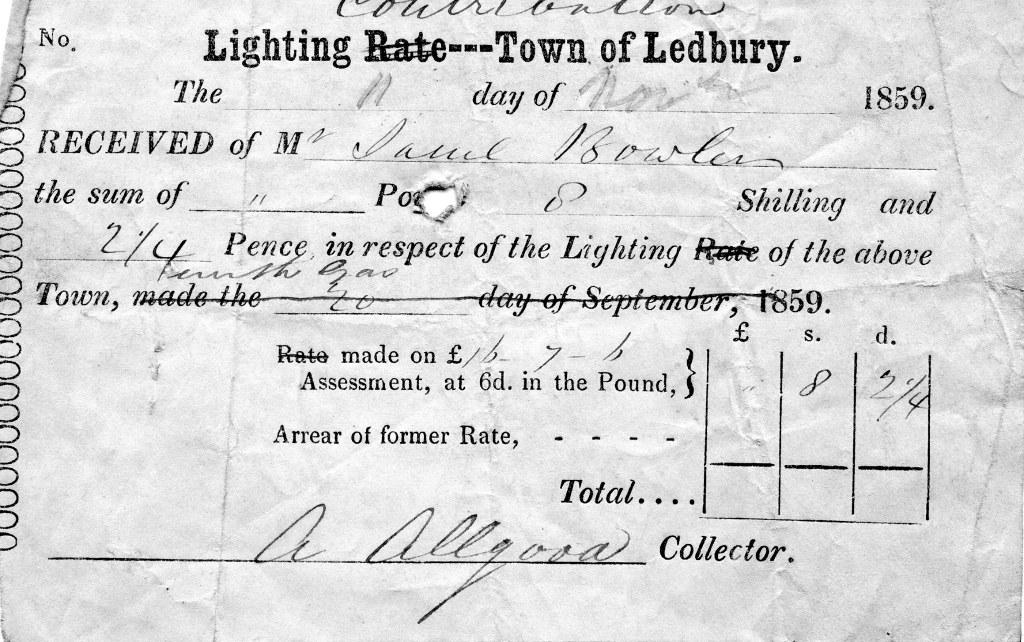 Contribution
No.
Lighting Rate---Town of Ledbury.
The 11 day of Novbr 1859.
RECEIVED of Mr Saml Bowler
the sum of " Po 8 Shilling and
2 1/4 Pence, in respect of the Lighting Rate of the above
with Gas
Town, made the 20 day of September, 1859.
£ s. d.
Rate made on £16-7-6
Assessment, at 6d. in the Pound, } 8 2 1/4
Arrear of former Rate, - - - -
Total....
A Allgood Collector.